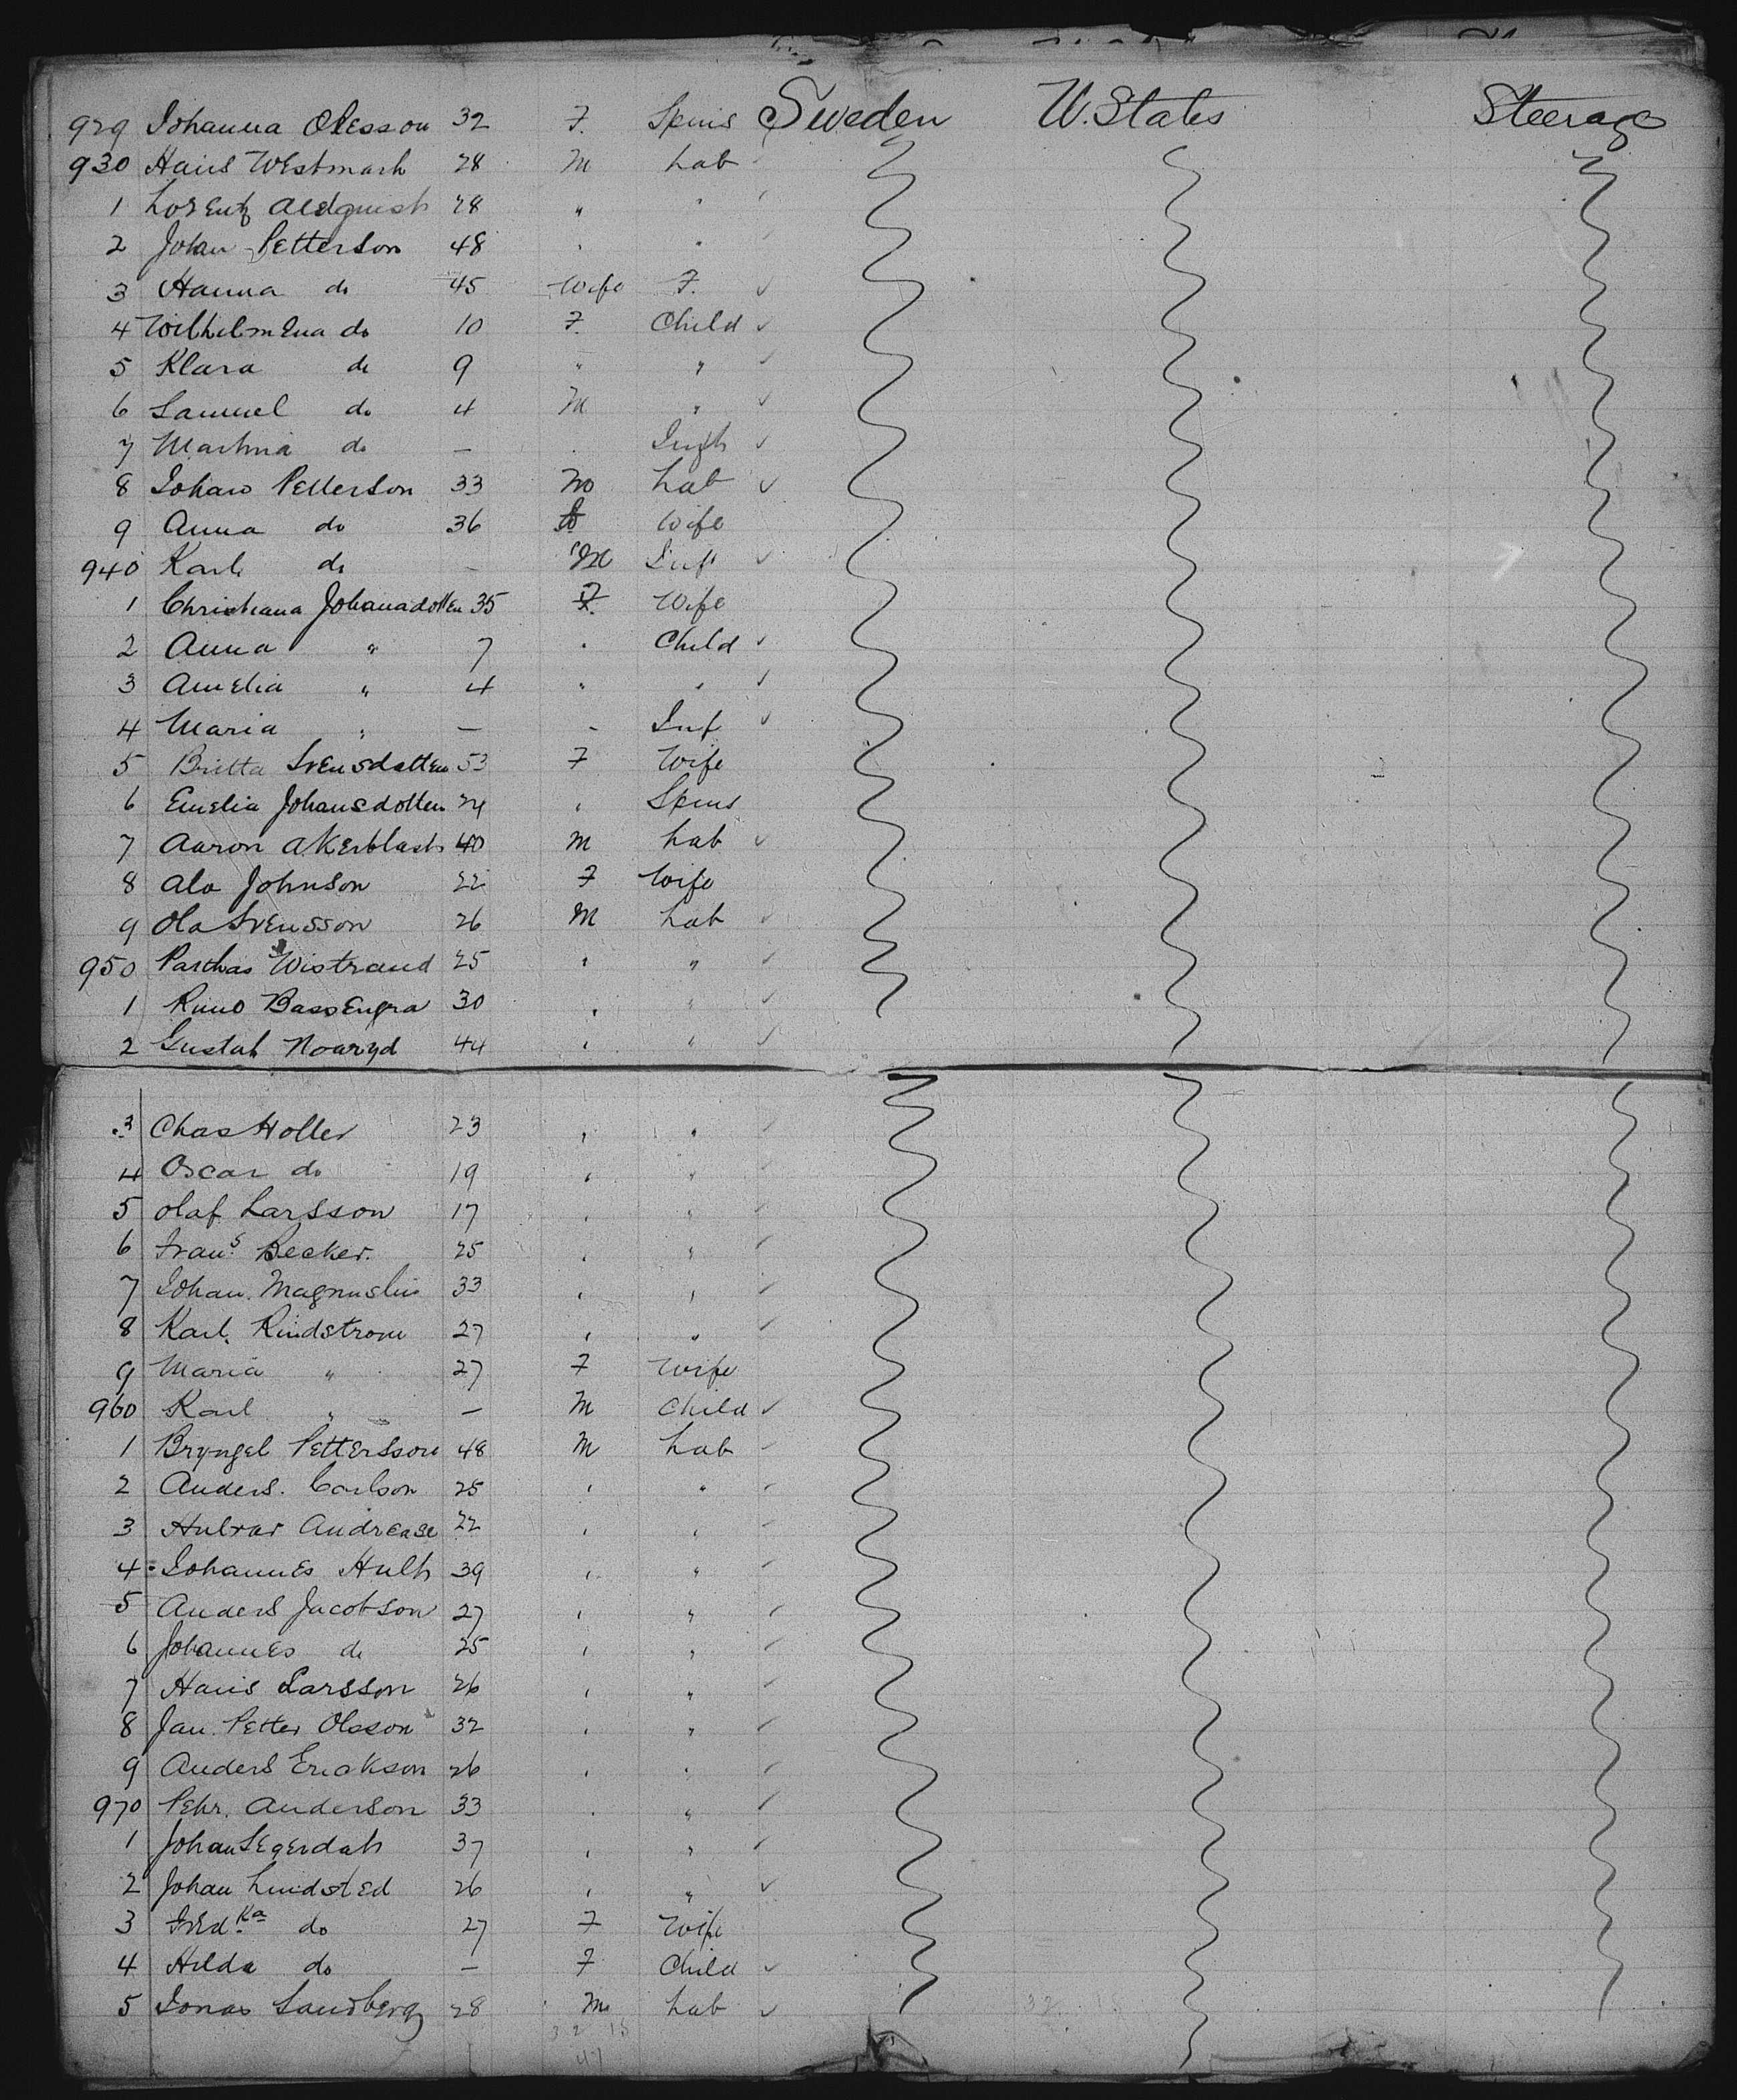 929 Johanna Olesson 32 F. Spins Sweden U. States Steerage
930 Hans Westmark 28 M Lab
1 Lorentz Aldquist 28 " "
2 Johan Petterson 48 " "
3 Hanna do 45 Wife F.
4 Wilhelmena do 10 F. Child
5 Klara do 9 " "
6 Samuel do 4 M "
7 Martina do — Infth
8 Johan Petterson 33 M Lab
9 Anna do 36 Wife
940 Karl do — M Inft
1 Christiana Johanadotten 35 F. Wife
2 Anna " 7 " Child
3 Amelia " 4 " "
4 Maria " — - Inf
5 Britta Svensdatten 53 F Wife
6 Emelia Johansdotten 24 " Spins
7 Aaron Akerblash 40 M Lab
8 Ala Johnson 22 F Wife
9 Ola Svensson 26 M Lab
950 Parthas Wistrand 25 " "
1 Runo Bassengra 30 " "
2 Gustaf Noaryd 44 " "
3 Chas Holler 23 " "
4 Oscar do 19 " "
5 Olaf Larsson 17 " "
6 Frans Becker. 25 " "
7 Johan. Magnuslin 33 " "
8 Karl. Rindstrom 27 " "
9 Maria " 27 F Wife
960 Karl " — M Child
1 Bryngel Pettersson 48 M Lab
2 Anders. Carlson 25 " "
3 Andrease 22 " "
4 Johannes Hulth 39 " "
5 Anders Jacobson 27 " "
6 Johannes do 25 " "
7 Hans Larsson 26 " "
8 Jan. Petter Oleson 32 " "
9 Anders Erickson 26 " "
970 Pehr. Anderson 33 " "
1 Johan Segerdah 37 " "
2 Johan Lindsted 26 " "
3 Fredka do 27 F Wife
4 Hilda do — F Child
5 Jonas Sandberg 28 M Lab 32
32 15
47